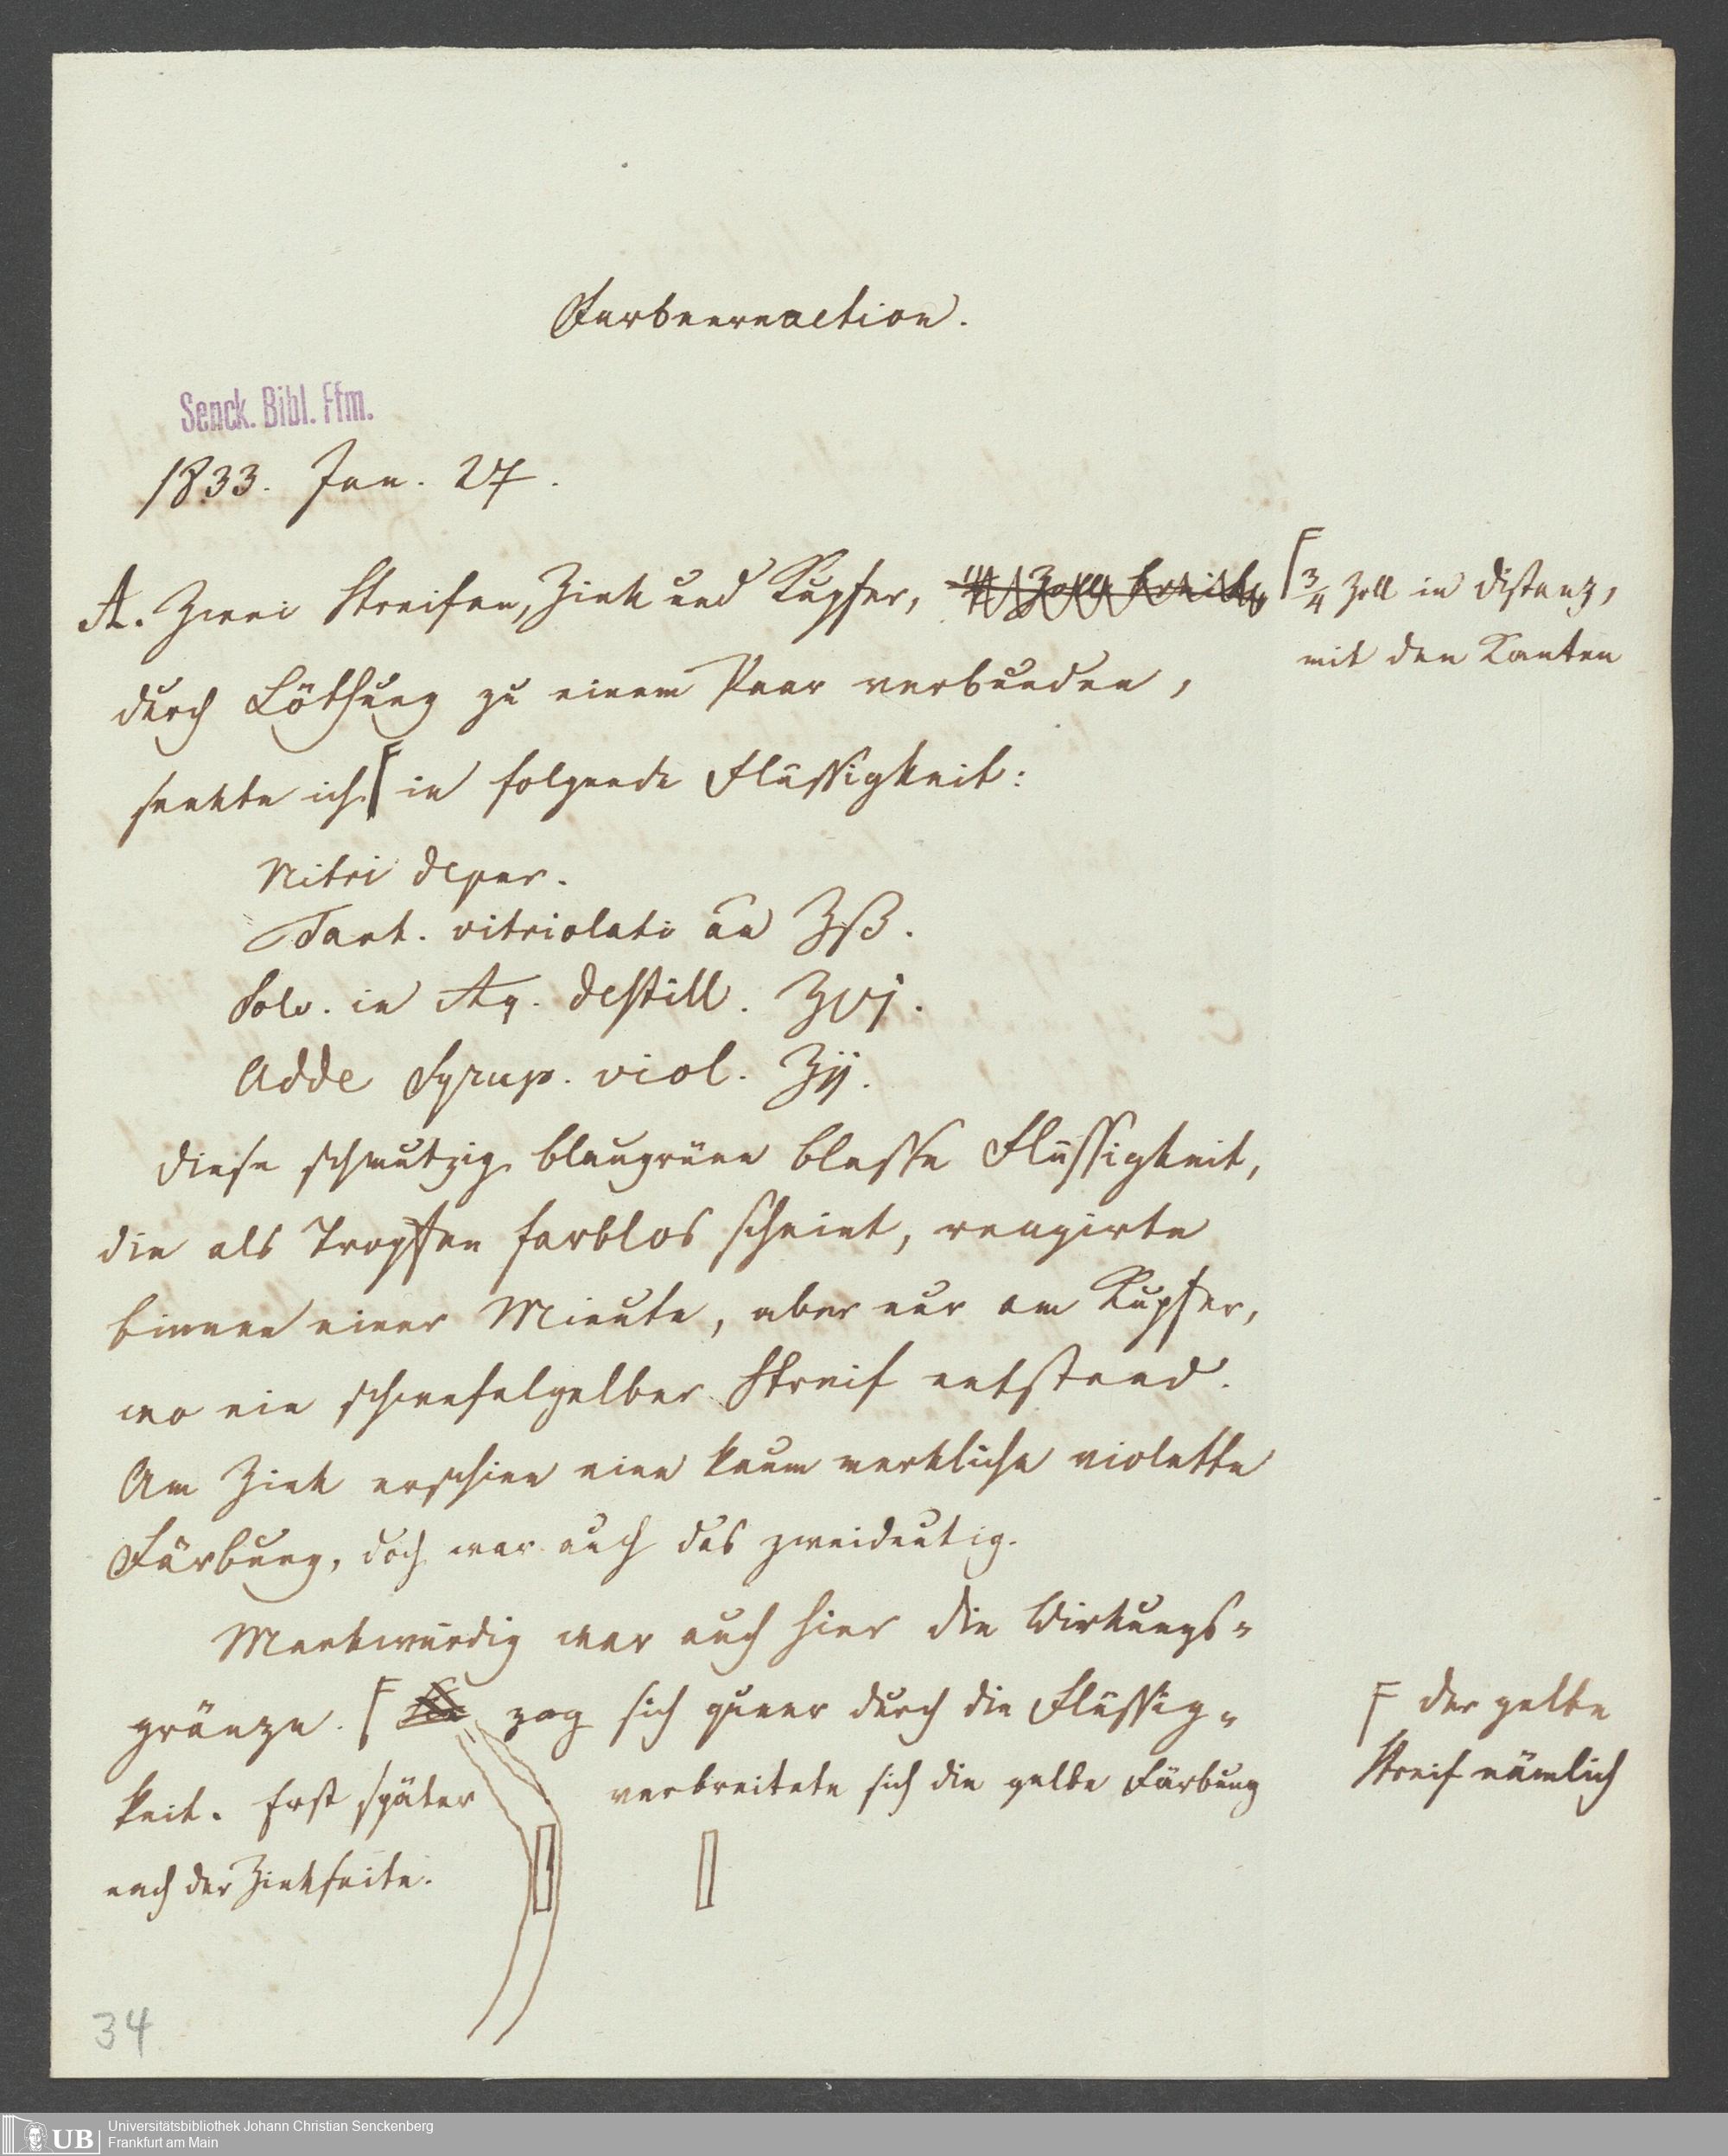 Farbenreaction.
Senck. Bibl. Ffm.
1833. Jan. 27.
A. Zwei Streifen, Zink und Kupfer,
3/4 Zoll in Distanz,
mit den Kanten
durch Löthung zu einem Paar verbunden,
senkte ich in folgende Flüssigkeit:
Nitri depur.
Tart. vitriolati aa ʒß.
Solv. in Aq. destill. ʒvj.
Adde Syrup. viol. ʒij.
Diese schmutzig blaugrüne blasse Flüssigkeit,
die als Tropfen farblos scheint, reagirte
binnen einer Minute, aber nur am Kupfer,
wo ein schwefelgelber Streif entstand.
Am Zink erschien eine kaum merkliche violette
Färbung, doch war auch das zweideutig.
Merkwürdig war auch hier die Wirkungs-
gränze. zog sich queer durch die Flüssig-
der gelbe
Streif nämlich
keit. Erst später verbreitete sich die gelbe Färbung
nach der Zinkseite.
34
UB
Universitätsbibliothek Johann Christian Senckenberg
Frankfurt am Main